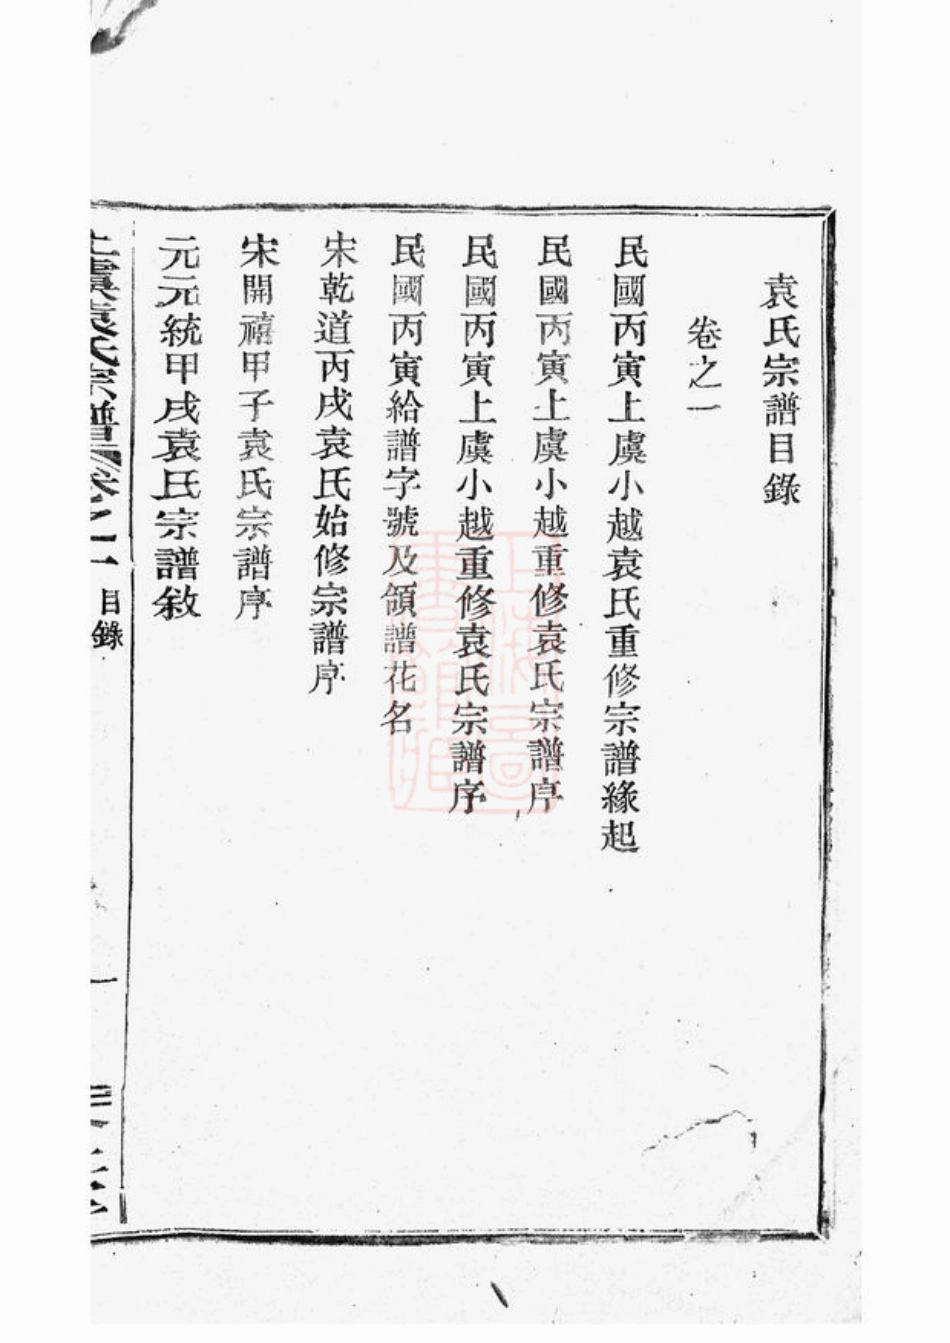 袁氏宗譜目錄
卷之一
民國丙寅上虞小越袁氏重修宗譜緣起
民國丙寅上虞小越重修袁氏宗譜序
民國丙寅上虞小越重修袁氏宗譜序
民國丙寅給譜字號及領譜花名
宋乾道丙戌袁氏始修宗譜序
宋開禧甲子袁氏宗譜序
元元統甲戌袁氏宗譜敘
上虞袁氏宗譜 卷之一 目錄 一
上海圖書館藏